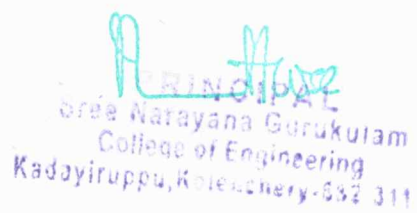 PRINCIPAL
Sree Narayana Gurukulam
College of Engineering
Kadayiruppu, Kolenchery-682 311